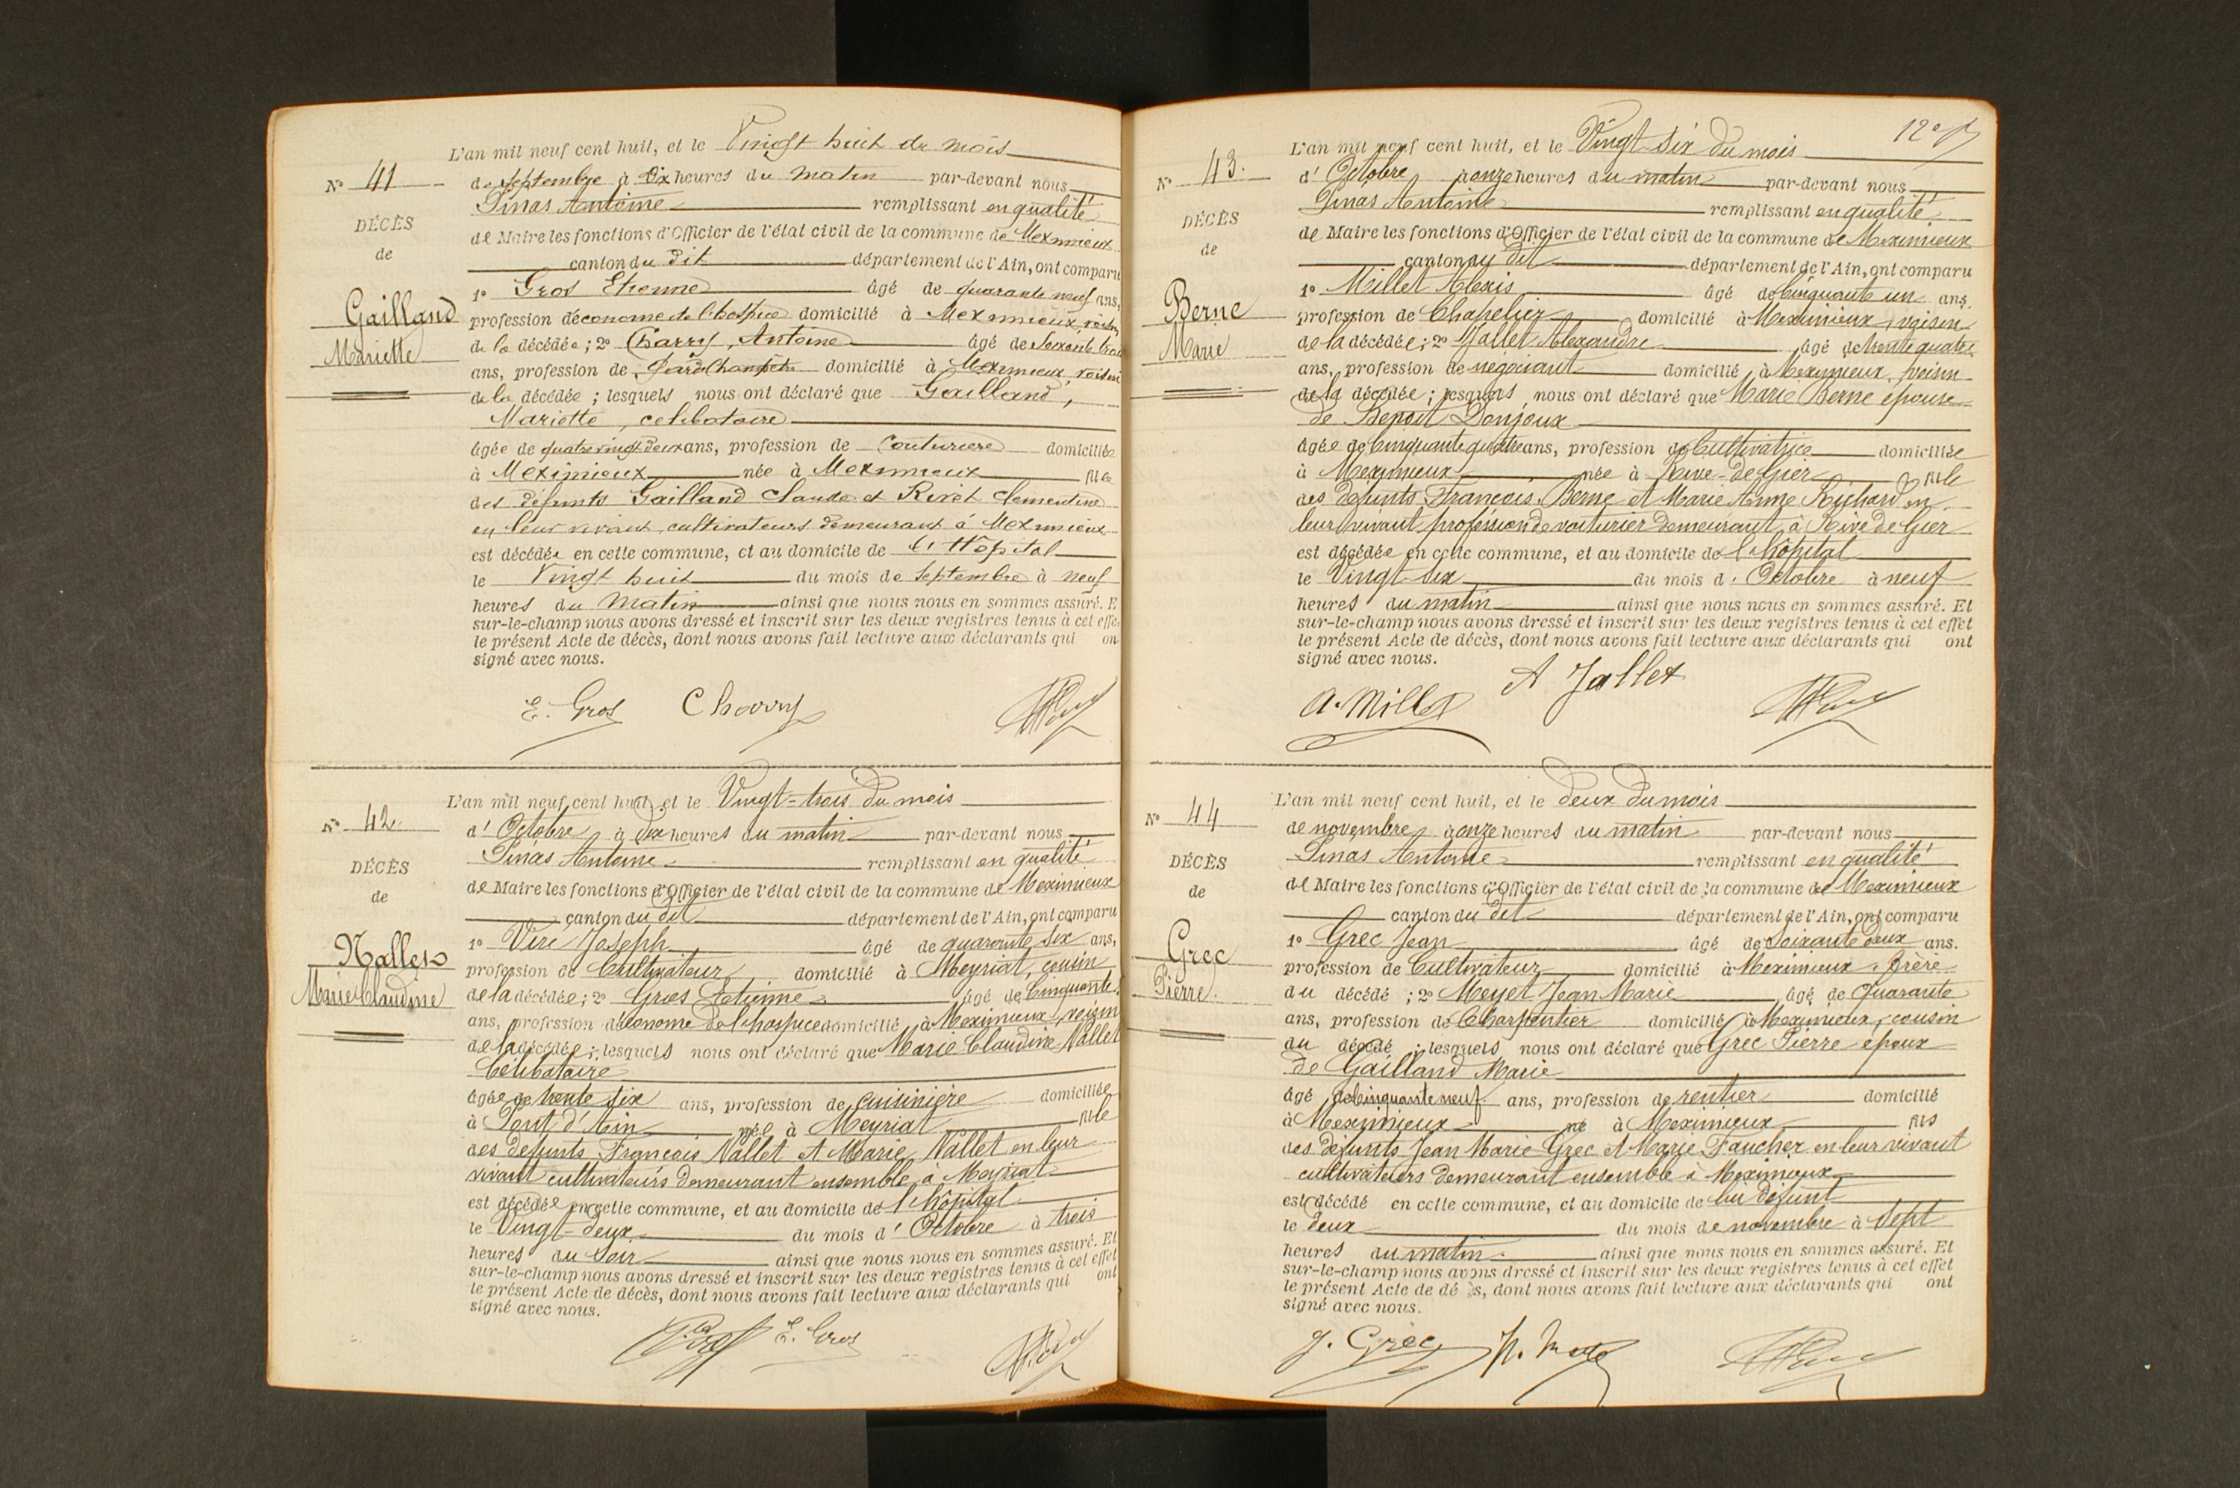 L'an mil neuf cent huit, et le Vingt huit du mois
N° 41
de septembre à Dix heures du matin par-devant nous
Pinas Antoine remplissant en qualité
DÉCÈS
de Maire les fonctions d'Officier de l'état civil de la commune de Meximieux
de
canton du dit département de l'Ain, ont comparu
1° Gros Etienne âgé de quarante neuf ans,
Gailland
profession d'économe de l'hospice domicilié à Meximieux, voisin
Mariette
de la décédée ; 2° Charry, Antoine âgé de soixante trois
ans, profession de Garde Champêtre domicilié à Meximieux, voisin
de la décédée ; lesquels nous ont déclaré que Gailland,
Mariette, celibataire
âgée de quatre vingt deux ans, profession de Couturiere domiciliée
à Meximieux née à Meximieux fille
des défunts Gailland Claude et Rivet Clementine
en leur vivant cultivateurs demeurant à Meximieux
est décédée en cette commune, et au domicile de l'Hôpital
le Vingt huit du mois de Septembre à neuf
heures du Matin ainsi que nous nous en sommes assuré. E
sur-le-champ nous avons dressé et inscrit sur les deux registres tenus à cet effe
le présent Acte de décès, dont nous avons fait lecture aux déclarants qui on
signé avec nous.
E. Gros Charry
L'an mil neuf cent huit, et le Vingt-trois du mois
N° 42.
d'Octobre à dix heures du matin par-devant nous
Pinas Antoine remplissant en qualité
DÉCÈS
de Maire les fonctions d'Officier de l'état civil de la commune de Meximieux
de
canton du dit département de l'Ain, ont comparu
1° Viré Joseph âgé de quarante six ans,
Nallet
profession de Cultivateur domicilié à Meyriat, cousin
Marie Claudine
de la décédée ; 2° Gros Etienne âgé de Cinquante
ans, profession d'économe de l'hospice domicilié à Meximieux, voisin
de la décédée ; lesquels nous ont déclaré que Marie Claudine Nallet
Célibataire
âgée de trente six ans, profession de cuisinière domiciliée
à Pont d'Ain née à Meyriat fille
des defunts François Nallet et Marie Nallet en leur
vivant cultivateurs demeurant ensemble à Meyriat
est décédée en cette commune, et au domicile de l'hôpital
le Vingt-deux du mois d'Octobre à trois
heures du Soir ainsi que nous nous en sommes assuré. Et
sur-le-champ nous avons dressé et inscrit sur les deux registres tenus à cet effet
le présent Acte de décès, dont nous avons fait lecture aux déclarants qui ont
signé avec nous.
E. Gros
L'an mil neuf cent huit, et le Vingt-six du mois
N° 43.
d'Octobre à onze heures du matin par-devant nous
Pinas Antoine remplissant en qualité
DÉCÈS
de Maire les fonctions d'Officier de l'état civil de la commune de Meximieux
de
canton du dit département de l'Ain, ont comparu
1° Millet Alexis âgé de Cinquante un ans.
Berne
profession de Chapelier domicilié à Meximieux, voisin
Marie
de la décédée ; 2° Jallet Alexandre âgé de trente quatre
ans, profession de négociant domicilié à Meximieux, voisin
de la décédée ; lesquels nous ont déclaré que Marie Berne épouse
de Benoit Donjoux
âgée de Cinquante quatre ans, profession de Cultivatrice domiciliée
à Meximieux née à Rive-de-Gier fille
des défunts François Berne et Marie Anne Richard en
leur vivant profession de voiturier demeurant à Rive de Gier
est décédée en cette commune, et au domicile de l'hôpital
le Vingt-six du mois d'Octobre à neuf
heures du matin ainsi que nous nous en sommes assuré. Et
sur-le-champ nous avons dressé et inscrit sur les deux registres tenus à cet effet
le présent Acte de décès, dont nous avons fait lecture aux déclarants qui ont
signé avec nous.
A. Millet A Jallet
L'an mil neuf cent huit, et le deux du mois
N° 44
de novembre à onze heures du matin par-devant nous
Pinas Antoine remplissant en qualité
DÉCÈS
de Maire les fonctions d'Officier de l'état civil de la commune de Meximieux
de
canton du dit département de l'Ain, ont comparu
1° Grec Jean âgé de Soixante deux ans.
Grec
profession de Cultivateur domicilié à Meximieux frère
Pierre.
du décédé ; 2° Meyet Jean Marie âgé de Quarante
ans, profession de Charpentier domicilié à Meximieux, cousin
du décédé ; lesquels nous ont déclaré que Grec Pierre époux
de Gailland Marie
âgé de Cinquante neuf ans, profession de rentier domicilié
à Meximieux né à Meximieux fils
des défunts Jean Marie Grec et Marie Faucher en leur vivant
cultivateurs demeurant ensemble à Meximieux
est décédé en cette commune, et au domicile de lui défunt
le deux du mois de novembre à Sept
heures du matin ainsi que nous nous en sommes assuré. Et
sur-le-champ nous avons dressé et inscrit sur les deux registres tenus à cet effet
le présent Acte de dé s, dont nous avons fait lecture aux déclarants qui ont
signé avec nous.
J. Grec